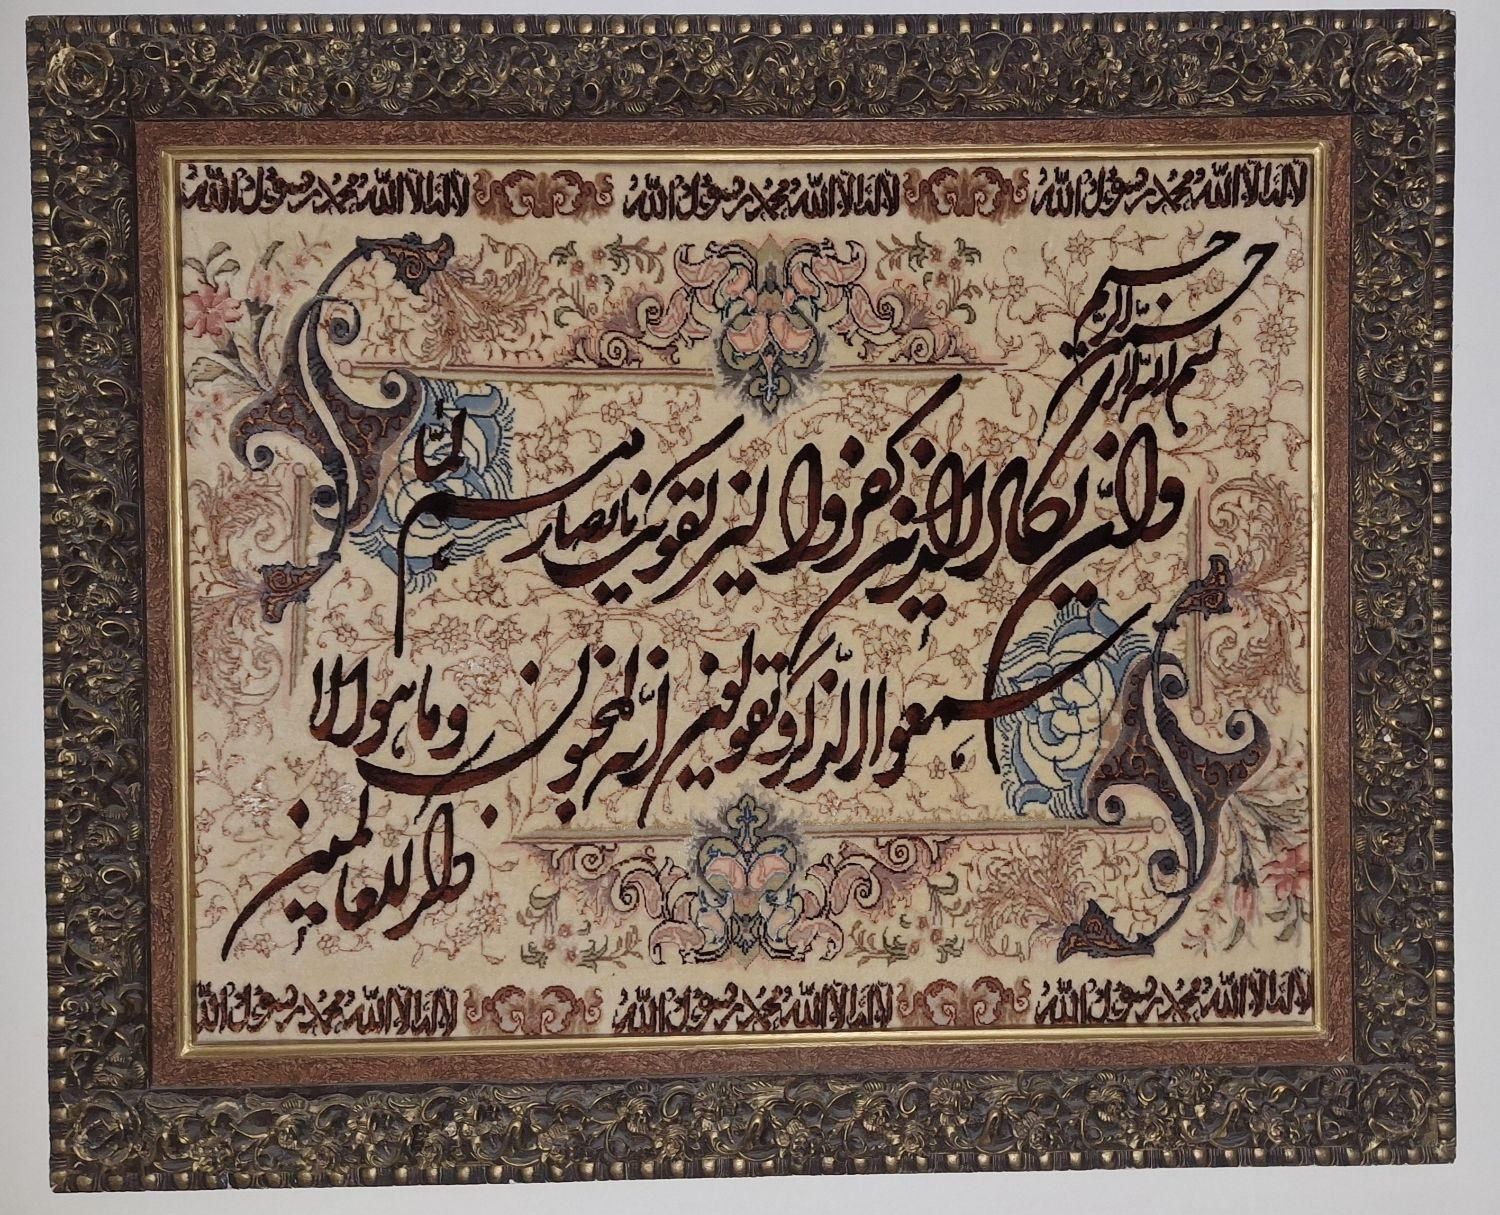 لا اله الا الله محمد رسول الله لا اله الا الله محمد رسول الله لا اله الا الله محمد رسول الله
بسم الله الرحمن الرحیم
وان یکاد الذین کفروا لیزلقونک بابصارهم لما
سمعوا الذکر و یقولون انه لمجنون و ما هو الا
ذکر للعالمین
لا اله الا الله محمد رسول الله لا اله الا الله محمد رسول الله لا اله الا الله محمد رسول الله